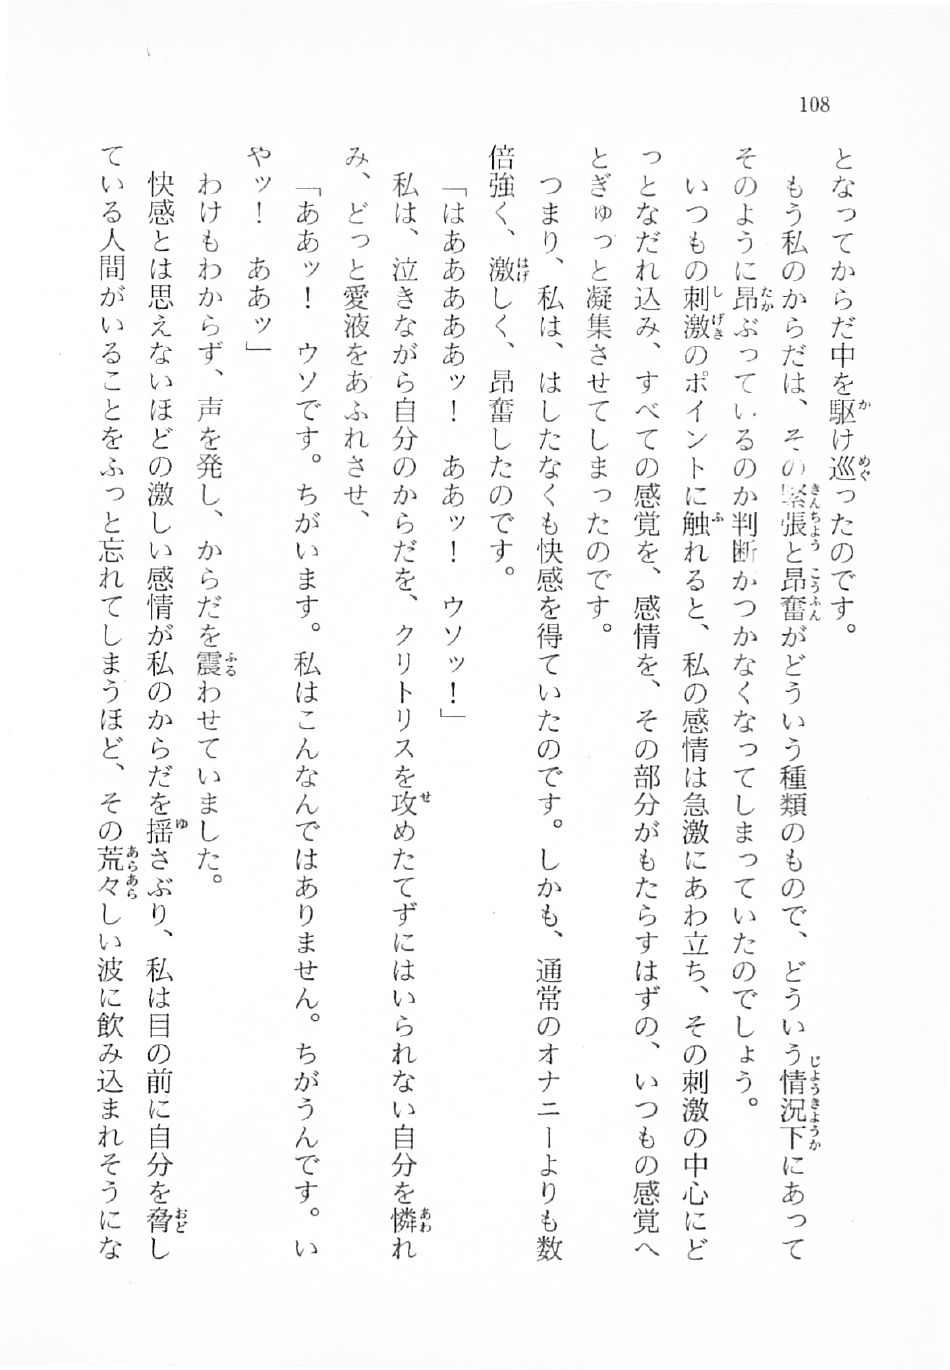 108
となってからだ中を駆け巡ったのです。
もう私のからだは、その緊張と昂奮がどういう種類のもので、どういう情況下にあって
そのように昂ぶっているのか判断がつかなくなってしまっていたのでしょう。
いつもの刺激のポイントに触れると、私の感情は急激にあわ立ち、その刺激の中心にど
っとなだれ込み、すべての感覚を、感情を、その部分がもたらすはずの、いつもの感覚へ
とぎゅっと凝集させてしまったのです。
つまり、私は、はしたなくも快感を得ていたのです。しかも、通常のオナニーよりも数
倍強く、激しく、昂奮したのです。
「はああああッ！　ああッ！　ウソッ！」
私は、泣きながら自分のからだを、クリトリスを攻めたてずにはいられない自分を憐れ
み、どっと愛液をあふれさせ、
「ああッ！　ウソです。ちがいます。私はこんなんではありません。ちがうんです。い
やッ！　ああッ」
わけもわからず、声を発し、からだを震わせていました。
快感とは思えないほどの激しい感情が私のからだを揺さぶり、私は目の前に自分を脅し
ている人間がいることをふっと忘れてしまうほど、その荒々しい波に飲み込まれそうにな